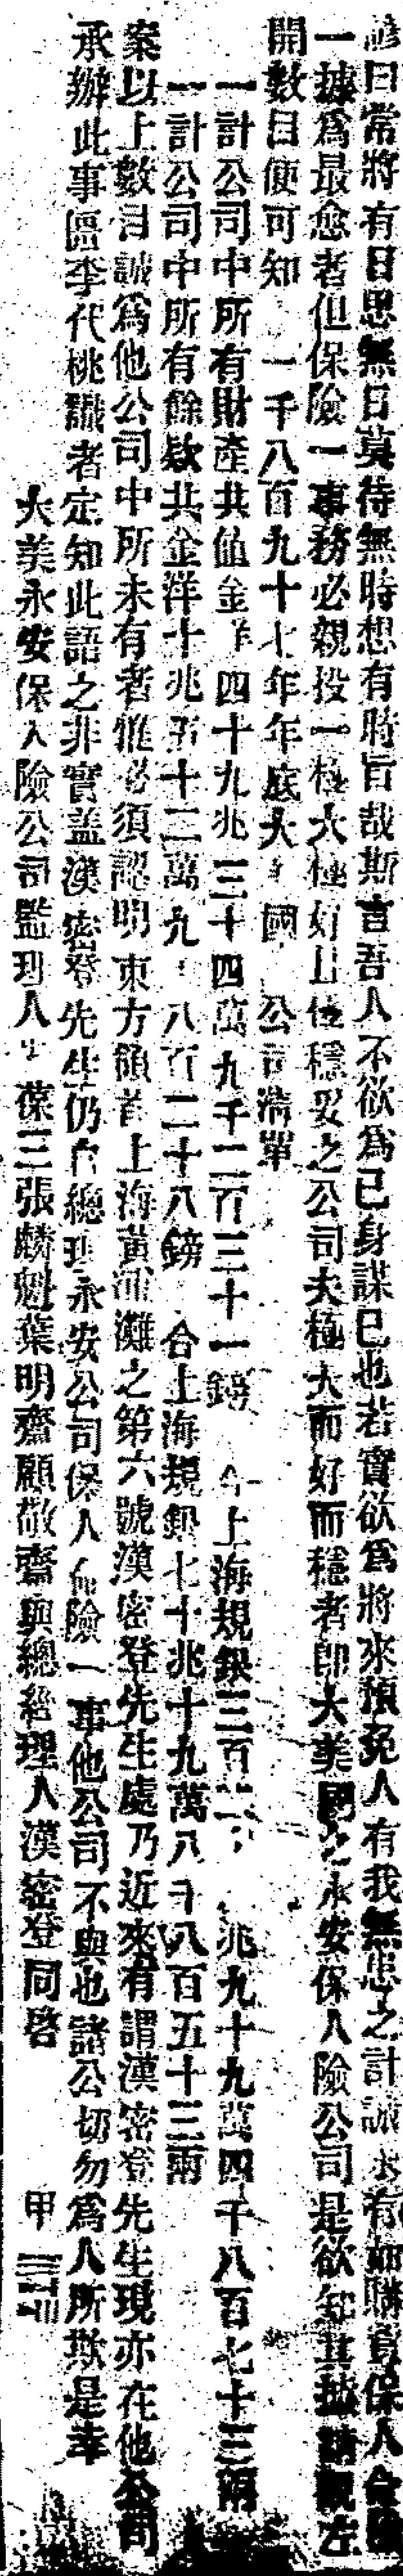 諺曰常將有日思無日莫待無時想有時旨哉斯言吾人不欲爲己身謀已也若實欲爲將來預免人有我無患之計誠未有如購買保人命險
一據爲最愈者但保險一事務必親投一極大極好且極穩妥之公司夫極大而好而穩者卽大美國之永安保人險公司是欲知其據請觀左
開數目便可知 一千八百九十七年年底大 國 公司淸單
一計公司中所有財產共値金洋四十九兆三十四萬九千二百三十一鎊 合上海規銀三百 兆九十九萬四千八百七十三兩
一計公司中所有餘欵共金洋十兆五十二萬九 八百二十八鎊 合上海規銀七十兆十九萬八千八百五十三兩
案以上數目誠爲他公司中所未有者惟必須認明東方領首上海黃浦灘之第六號漢密登先生處乃近來有謂漢密登先生現亦在他公司
承辦此事僵李代桃識者定知此語之非實蓋漢密登先生仍自總理永安公司保人命險一事他公司不與也諸公切勿爲人所欺是幸
大美永安保人險公司監理人 葆三張麟魁葉明齋顧敬齋與總經理人漢密登同啓 甲